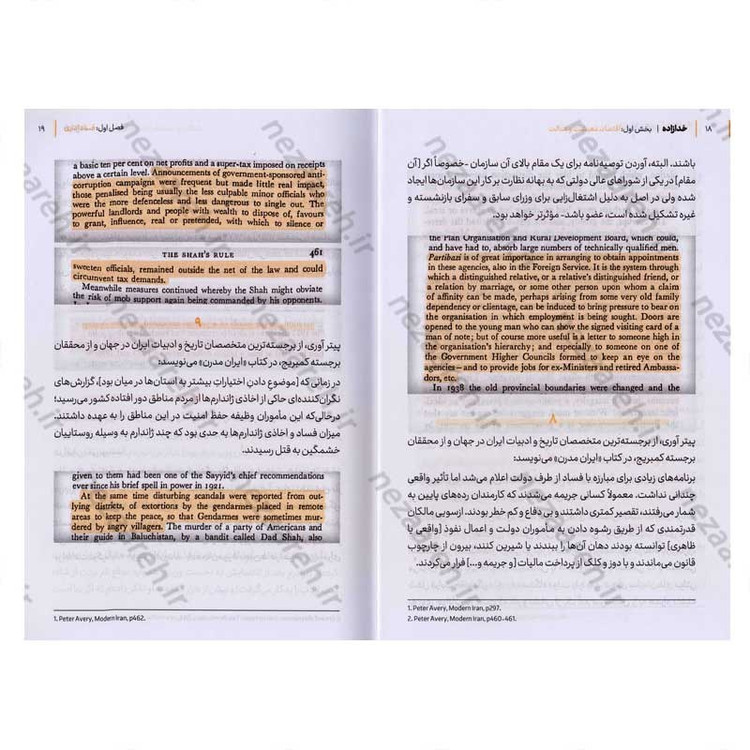 ۱۸ خدازاده | بخش اول:
باشند. البته، آوردن توصیه‌نامه برای یک مقام بالای آن سازمان -خصوصاً اگر [آن
مقام] در یکی از شوراهای عالی دولتی که به بهانه نظارت بر کار این سازمان‌ها ایجاد
شده ولی در اصل به دلیل اشتغال‌زایی برای وزرای سابق و سفرای بازنشسته و
غیره تشکیل شده است، عضو باشد- مؤثرتر خواهد بود.
the Plan Organisation and Rural Development Board, which could,
and have had to, absorb large numbers of technically qualified men.
Partibazi is of great importance in arranging to obtain appointments
in these agencies, also in the Foreign Service. It is the system through
which a distinguished relative, or a relative's distinguished friend, or
a relation by marriage, or some other person upon whom a claim
of affinity can be made, perhaps arising from some very old family
dependency or clientage, can be induced to bring pressure to bear on
the organisation in which employment is being sought. Doors are
opened to the young man who can show the signed visiting card of a
man of note; but of course more useful is a letter to someone high in
the organisation's hierarchy; and especially to someone on one of
the Government Higher Councils formed to keep an eye on the
agencies—and to provide jobs for ex-Ministers and retired Ambassa-
dors, etc.
In 1938 the old provincial boundaries were changed and the
۸
پیتر آوری، از برجسته‌ترین متخصصان تاریخ و ادبیات ایران در جهان و از محققان
برجسته کمبریج، در کتاب «ایران مدرن» می‌نویسد:
برنامه‌های زیادی برای مبارزه با فساد از طرف دولت اعلام می‌شد اما تأثیر واقعی
چندانی نداشت. معمولاً کسانی جریمه می‌شدند که کارمندان رده‌های پایین به
شمار می‌رفتند، تقصیر کمتری داشتند و بی دفاع و کم خطر بودند. ازسویی مالکان
قدرتمندی که از طریق رشوه دادن به مأموران دولت و اعمال نفوذ [واقعی یا
ظاهری] توانسته بودند دهان آن‌ها را ببندند یا شیرین کنند، بیرون از چارچوب
قانون می‌ماندند و با دوز و کلک از پرداخت مالیات [و جریمه و...] فرار می‌کردند.
1. Peter Avery, Modern Iran, p297.
2. Peter Avery, Modern Iran, p460-461.
فصل اول: ۱۹
a basic ten per cent on net profits and a super-tax imposed on receipts
above a certain level. Announcements of government-sponsored anti-
corruption campaigns were frequent but made little real impact,
those penalised being usually the less culpable minor officials who
were the more defenceless and less dangerous to single out. The
powerful landlords and people with wealth to dispose of, favours
to grant, influence, real or pretended, with which to silence or
THE SHAH'S RULE 461
sweeten officials, remained outside the net of the law and could
circumvent tax demands.
Meanwhile measures continued whereby the Shah might obviate
the risk of mob support again being commanded by his opponents.
۹
پیتر آوری، از برجسته‌ترین متخصصان تاریخ و ادبیات ایران در جهان و از محققان
برجسته کمبریج، در کتاب «ایران مدرن» می‌نویسد:
در زمانی که [موضوع دادنِ اختیارات بیشتر به استان‌ها در میان بود]، گزارش‌های
نگران‌کننده‌ای حاکی از اخاذی ژاندارم‌ها از مردم مناطق دور افتاده کشور می‌رسید؛
درحالی‌که این مأموران وظیفه حفظ امنیت در این مناطق را به عهده داشتند.
میزان فساد و اخاذی ژاندارم‌ها به حدی بود که چند ژاندارم به وسیله روستاییان
خشمگین به قتل رسیدند.
given to them had been one of the Sayyid's chief recommendations
ever since his brief spell in power in 1921.
At the same time disturbing scandals were reported from out-
lying districts, of extortions by the gendarmes placed in remote
areas to keep the peace, so that Gendarmes were sometimes mur-
dered by angry villagers. The murder of a party of Americans and
their guide in Baluchistan, by a bandit called Dad Shah, also
1. Peter Avery, Modern Iran, p462.
nezaareh.ir